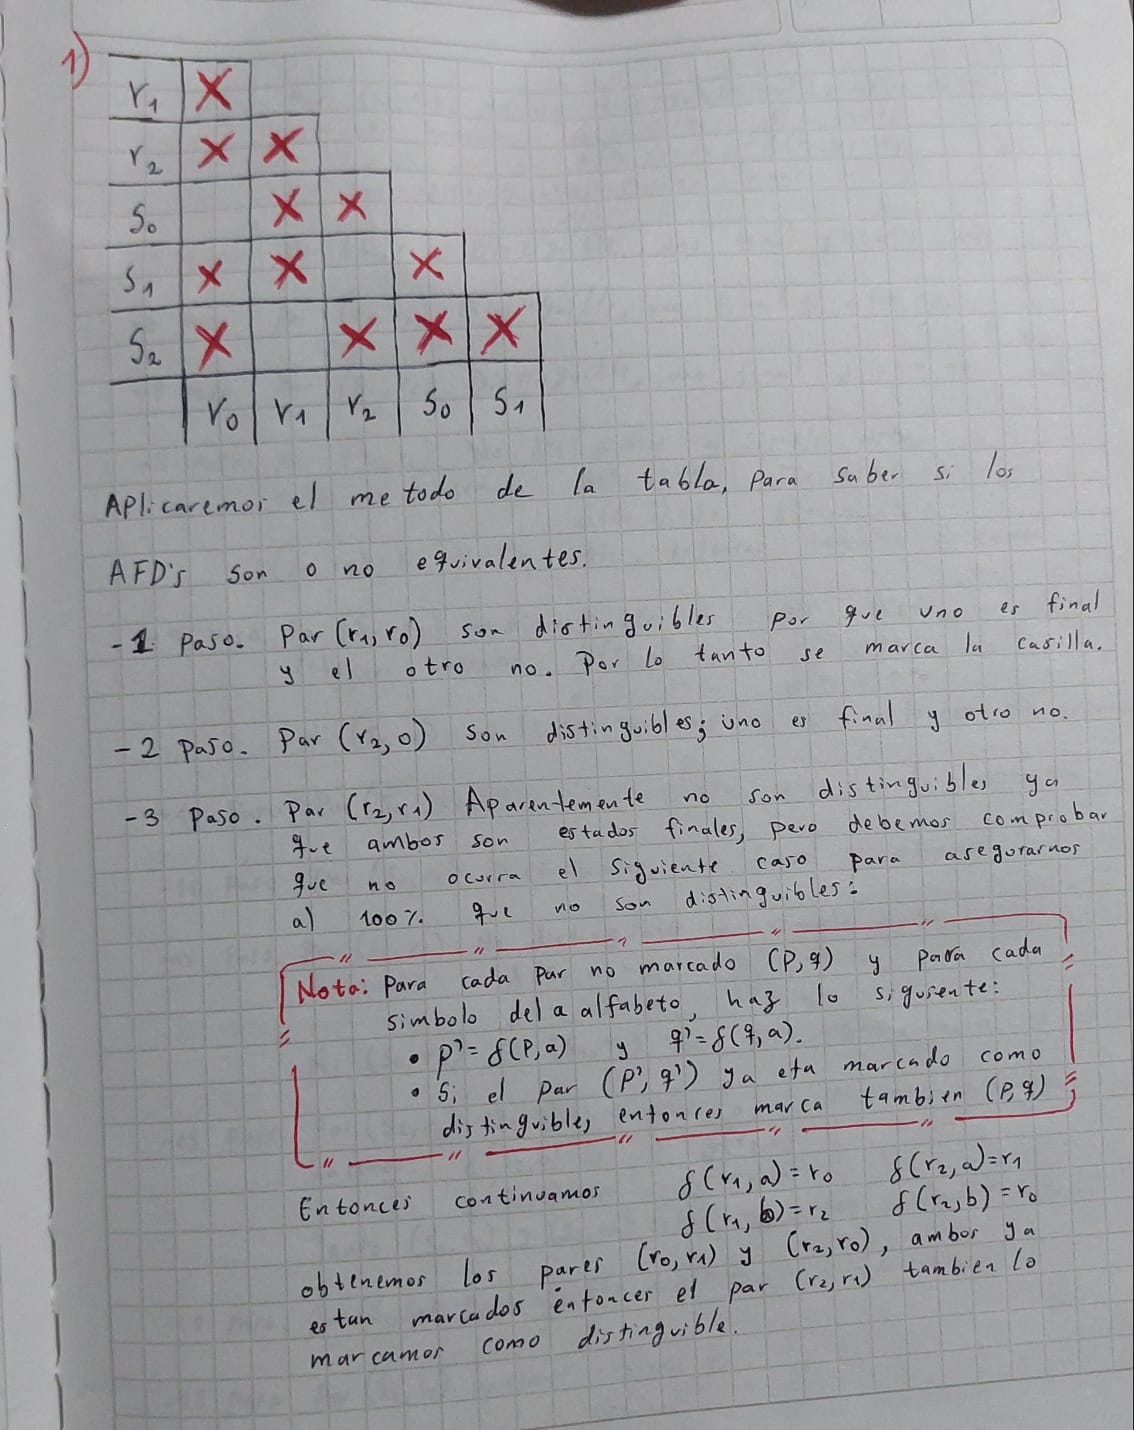 1)
r₁ X
r₂ X X
S₀ X X
S₁ X X X
S₂ X X X X
r₀ r₁ r₂ S₀ S₁
Aplicaremos el metodo de la tabla, para saber si los
AFD's son o no equivalentes.
-1 Paso. Par (r₁, r₀) son distinguibles por que uno es final
y el otro no. Por lo tanto se marca la casilla.
-2 Paso. Par (r₂, 0) son distinguibles; uno es final y otro no.
-3 Paso. Par (r₂, r₁) Aparentemente no son distinguibles ya
que ambos son estados finales, pero debemos comprobar
que no ocurra el siguiente caso para asegurarnos
a) 100% que no son distinguibles:
Nota: Para cada par no marcado (P, q) y para cada
simbolo del a alfabeto, haz lo siguiente:
• p' = δ(P, a) y q' = δ(q, a).
• Si el par (p', q') ya eta marcado como
distinguible, entonces marca tambien (P, q)
Entonces continuamos δ(r₁, a) = r₀ δ(r₂, a) = r₁
δ(r₁, b) = r₂ δ(r₂, b) = r₀
obtenemos los pares (r₀, r₁) y (r₂, r₀), ambos ya
estan marcados entonces el par (r₂, r₁) tambien lo
marcamos como distinguible.